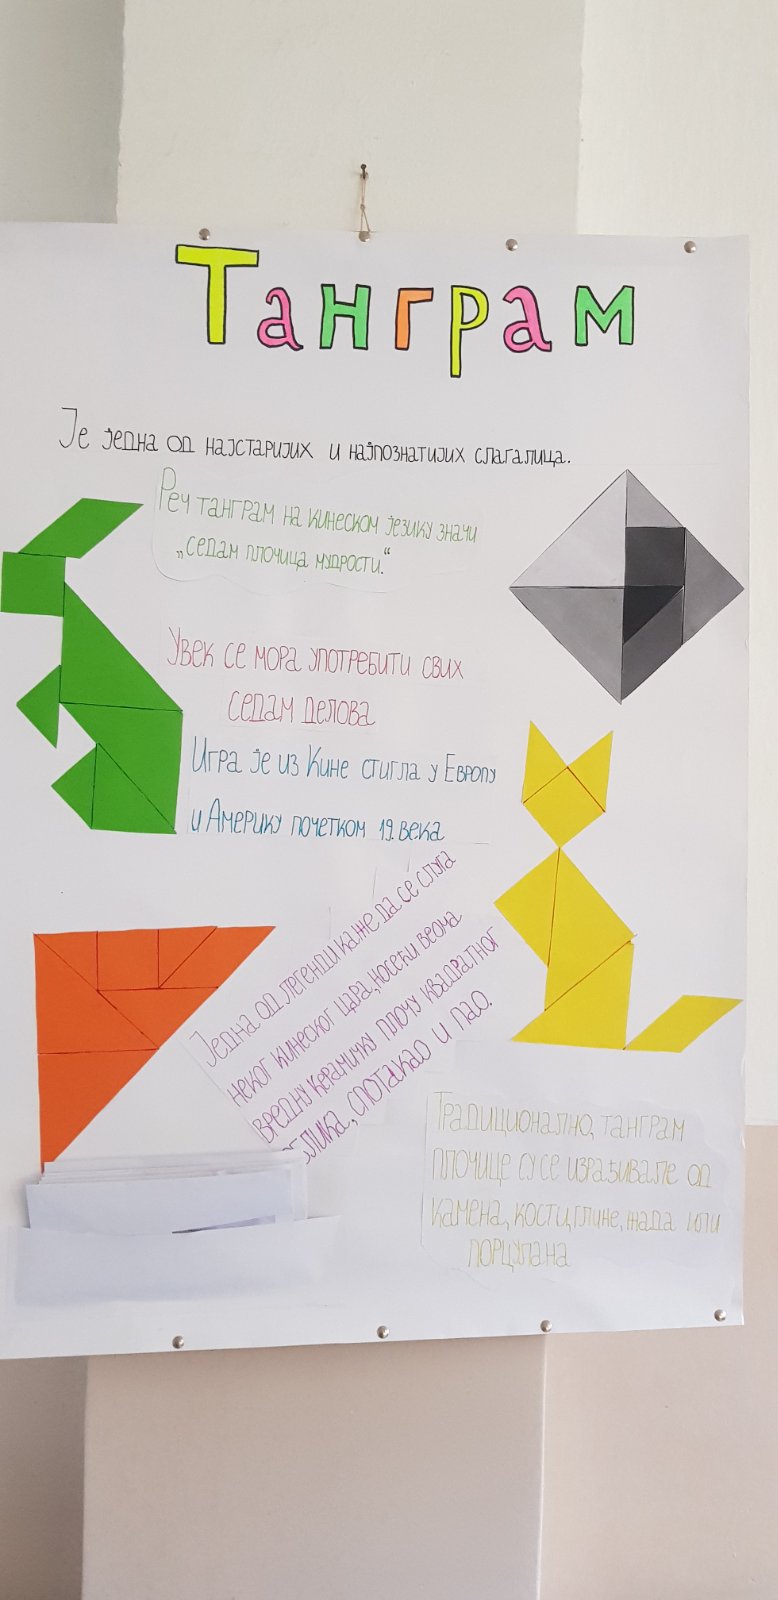 Танграм
Је једна од најстаријих и најпознатијих слагалица.
Реч танграм на кинеском језику значи
„седам плочица мудрости.“
Увек се мора употребити свих
седам делова
Игра је из Кине стигла у Европу
и Америку почетком 19. века
Једна од легенди каже да се слуга
неког кинеског цара, носећи веома
вредну керамичку плочу квадратног
облика, спотакао и пао.
Традиционално, танграм
плочице су се израђивале од
камена, кости, глине, жада или
порцулана